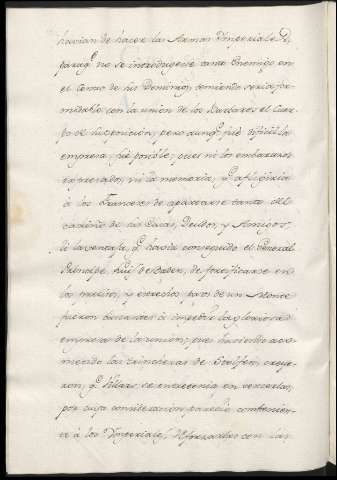 havian de hacer las Armas Imperiales,
paraq.e no se introdugese tanto Enemigo en
el centro de sus Dominios, temiendo seria for-
midable con la union de los Bavaros el Cuer-
po de su posicion, pero aunq.e fué dificil la
empresa, fue posible, pues ni los embarazos
expresados, ni la memoria, q.e afligiria
à los Franceses de apartarse tanto del
camino de sus Casas, Deudos, y Amigos,
ni la ventaja, q.e havia conseguido el General
Principe Luis de Baden, de fortificarse en
lo preciso, y estrechos pasos de un Monte
fueron bastantes à impedir la gloriosa
empresa de la union; pues haviendo aco-
metido las trincheras de Stolfen, creye-
ron, q.e Villars se entretenia en vencerlas,
por cuya consideracion parecio combenien-
te à los Imperiales, reforzarlas con las